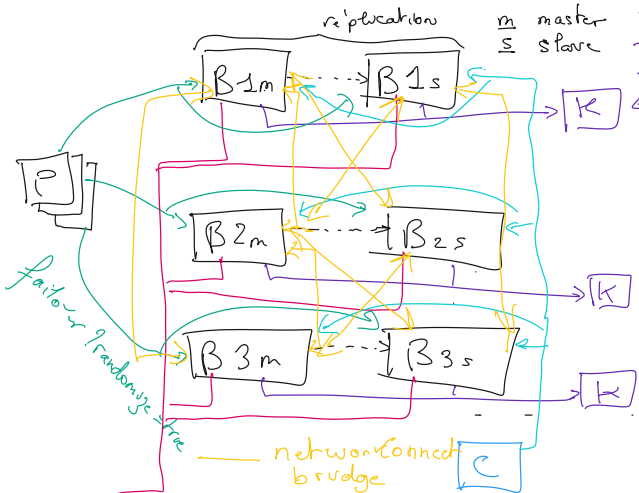 réplication
m master
s slave
B1m
B1s
K
P
B2m
B2s
K
failover ? randomize = true
B3m
B3s
K
networkConnect
brudge
C